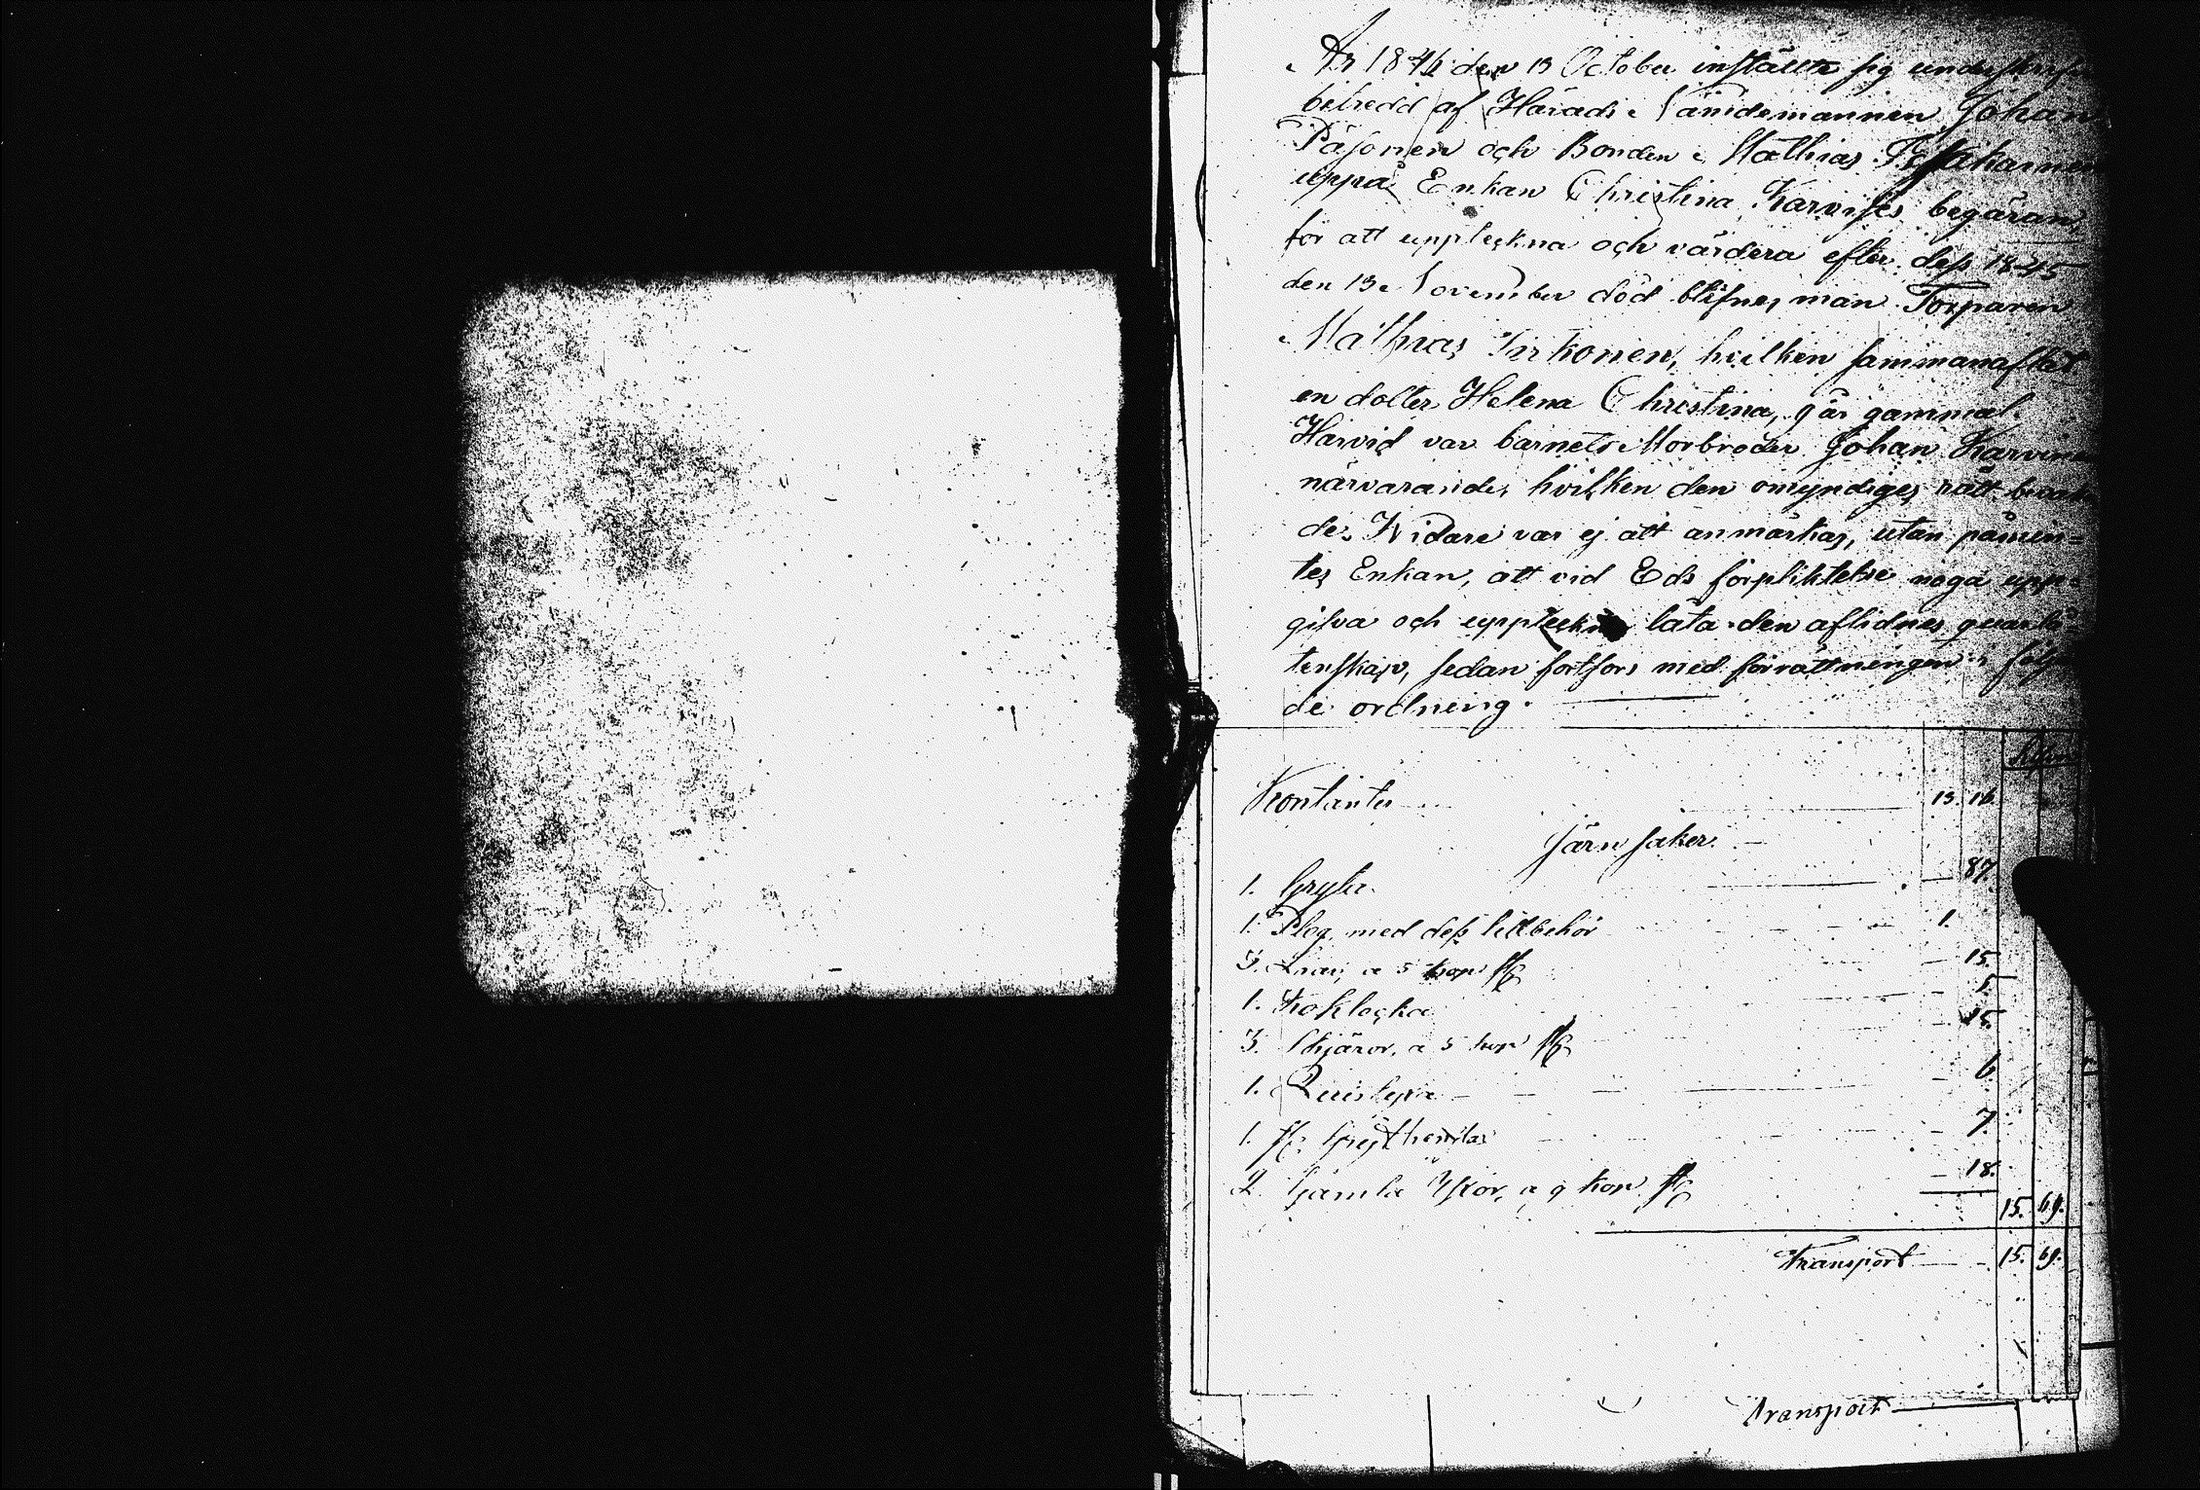 År 1846 den 13 October inställte sig underskrif
beträdd af Härads Nämdemannen Johan
Päsonen och Bonden Mathias
uppå Enkan Christina Karvises begäran,
för att upptekna och värdera efter dess 1845
den 13 November död blifne man Torparen
Mathias Hirkonen, hvilken sammanaflat
en dotter Helena Christina, 9 år gammal.
Härvid var barnets Morbroder Johan Karvinen
närvarande, hvilken den omyndiges rätt bevaka
de. Vidare var ej att anmärkas, utan påmin=
tes Enkan, att vid Eds förpliktelse noga upp=
gifva och upptekna låta den aflidnes quarlå=
tenskap, sedan fortfors med förrättningen i följ
de ordning.
Kontanter 13. 16
Järn saker.
1. Gryta 87.
1. Plog med dess tillbehör 1.
3. Liar, a 5 kop st 15.
1. Koklocka 5
3. Skjäror, a 5 kop st 15.
1. 6
1. st. 7.
2. Gamla Yxor, a 9 kop st 18.
15. 69.
Transport 15. 69.
Transport